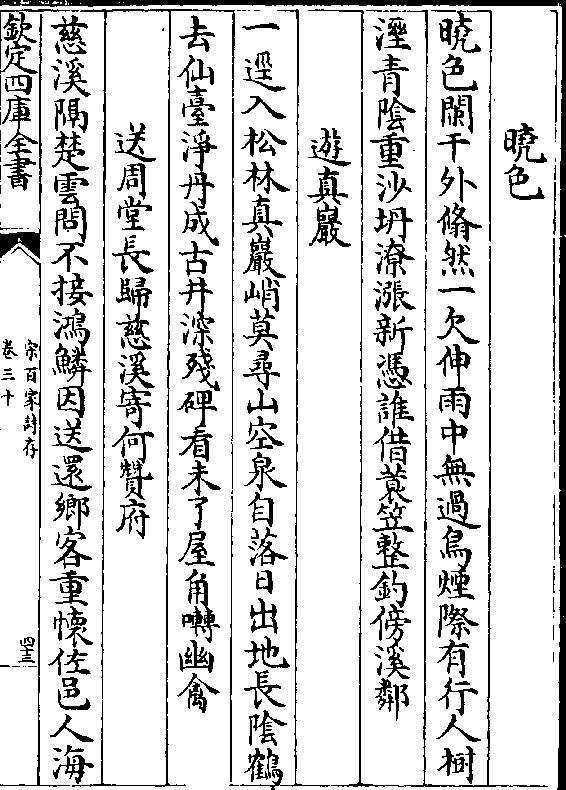 曉色
曉色闌干外翛然一欠伸雨中無過鳥煙際有行人樹
溼青陰重沙坍潦漲新憑誰借蓑笠整釣傍溪鄰
遊真巖
一逕入松林真巖峭莫尋山空泉自落日出地長陰鶴
去仙臺淨丹成古井深殘碑看未了屋角囀幽禽
送周堂長歸慈溪寄何贊府
慈溪隔楚雲問不接鴻鱗因送還鄉客重懐佐邑人海
欽定四庫全書
宋百家詩存
卷三十
四三